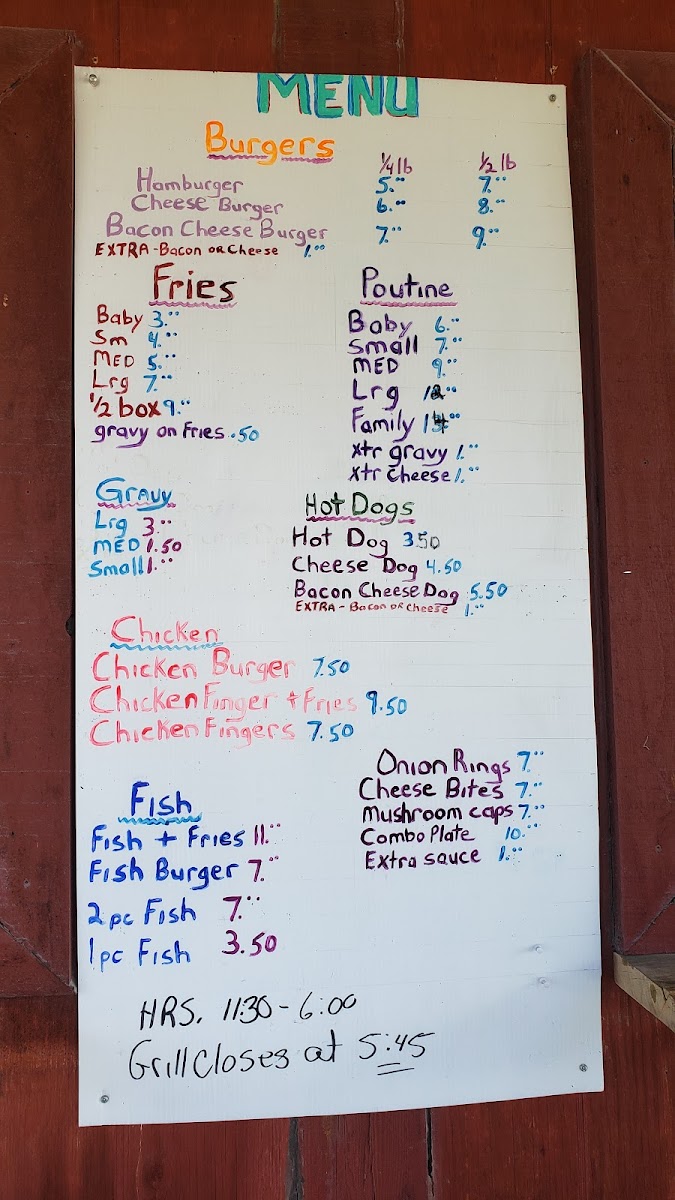 MENU
Burgers
1/4 lb 1/2 lb
Hamburger 5.00 7.00
Cheese Burger 6.00 8.00
Bacon Cheese Burger 7.00 9.00
EXTRA - Bacon or Cheese 1.00
Fries
Baby 3.00
Sm 4.00
MED 5.00
Lrg 7.00
1/2 box 9.00
gravy on Fries .50
Poutine
Baby 6.00
Small 7.00
MED 9.00
Lrg
Family
xtr gravy 1.00
xtr cheese 1.00
Gravy
Lrg 3.00
MED 1.50
Small 1.00
Hot Dogs
Hot Dog 3.50
Cheese Dog 4.50
Bacon Cheese Dog 5.50
EXTRA - Bacon or Cheese 1.00
Chicken
Chicken Burger 7.50
Chicken Finger + Fries 9.50
Chicken Fingers 7.50
Onion Rings 7.00
Cheese Bites 7.00
Mushroom caps 7.00
Combo Plate 10.00
Extra sauce 1.00
Fish
Fish + Fries 11.00
Fish Burger 7.00
2pc Fish 7.00
1pc Fish 3.50
HRS. 11:30 - 6:00
Grill Closes at 5:45